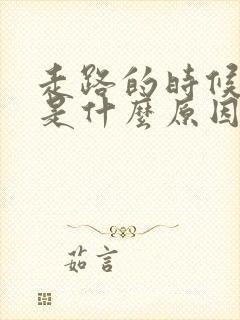 走路的時候
是什麼原因
茹言